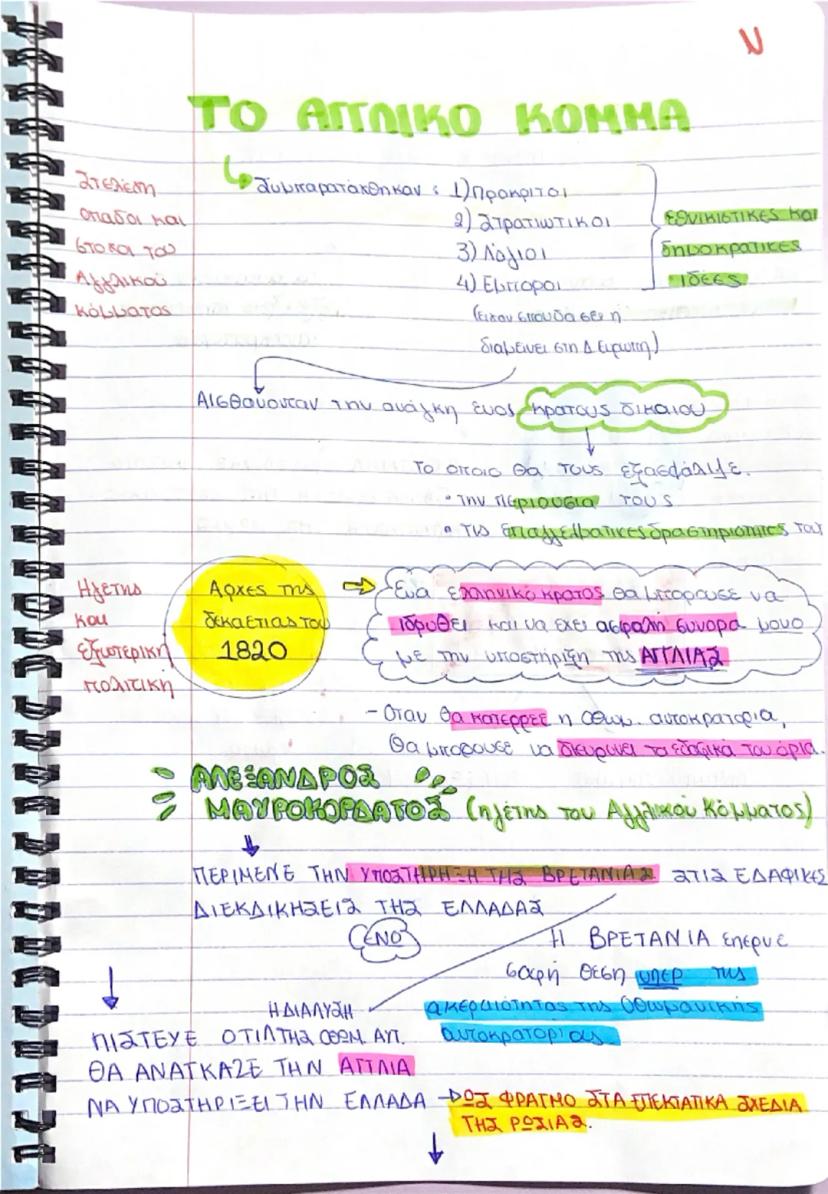 N
ΤΟ ΑΓΓΛΙΚΟ ΚΟΜΜΑ
Στελέχη
οπαδοι και
στοχοι του
Αγγλικού
κόμματος
Συμπαρατάχθηκαν : 1) Πρόκριτοι
2) Στρατιωτικοι
3) Λόγιοι
4) Εμποροι
(ειχαν σπουδάσει ή
διαμείνει στη Δ. Ευρωπη)
εθνικιστικες και
δημοκρατικες
ιδέες
Αισθάνονταν την ανάγκη ενος κρατους δικαιου
Το οποιο θα τους εξασφάλιζε.
• την περιουσια τους
• τις επαγγελματικες δραστηριότητες τους
Ηγέτης
και
εξωτερική
πολιτική
Αρχες της
δεκαετιας του
1820
Ενα ελληνικό κρατος θα μπορουσε να
ιδρυθεί και να έχει ασφαλή συνορα μονο
με την υποστήριξη της ΑΓΓΛΙΑΣ
- Οταν θα κατερρεε η οθωμ. αυτοκρατορια,
θα μπορουσε να διευρυνει τα εδαφικά του όρια.
ΑΛΕΞΑΝΔΡΟΣ
ΜΑΥΡΟΚΟΡΔΑΤΟΣ (ηγέτης του Αγγλικού Κόμματος)
ΠΕΡΙΜΕΝΕ ΤΗΝ ΥΠΟΣΤΗΡΗΞΗ ΤΗΣ ΒΡΕΤΑΝΙΑΣ ΣΤΙΣ ΕΔΑΦΙΚΕΣ
ΔΙΕΚΔΙΚΗΣΕΙΣ ΤΗΣ ΕΛΛΑΔΑΣ
ΕΝΩ
Η ΒΡΕΤΑΝΙΑ επερνε
σαφή θεση υπερ της
ακεραιότητας της Οθωμανικής
αυτοκρατοριας
Η ΔΙΑΛΥΣΗ
ΠΙΣΤΕΥΕ ΟΤΙ ΤΗΣ ΟΘΩΜ. ΑΥΤ.
ΘΑ ΑΝΑΓΚΑΖΕ ΤΗΝ ΑΓΓΛΙΑ
ΝΑ ΥΠΟΣΤΗΡΙΞΕΙ ΤΗΝ ΕΛΛΑΔΑ → ΩΣ ΦΡΑΓΜΟ ΣΤΑ ΕΠΕΚΤΑΤΙΚΑ ΣΧΕΔΙΑ
ΤΗΣ ΡΩΣΙΑΣ.